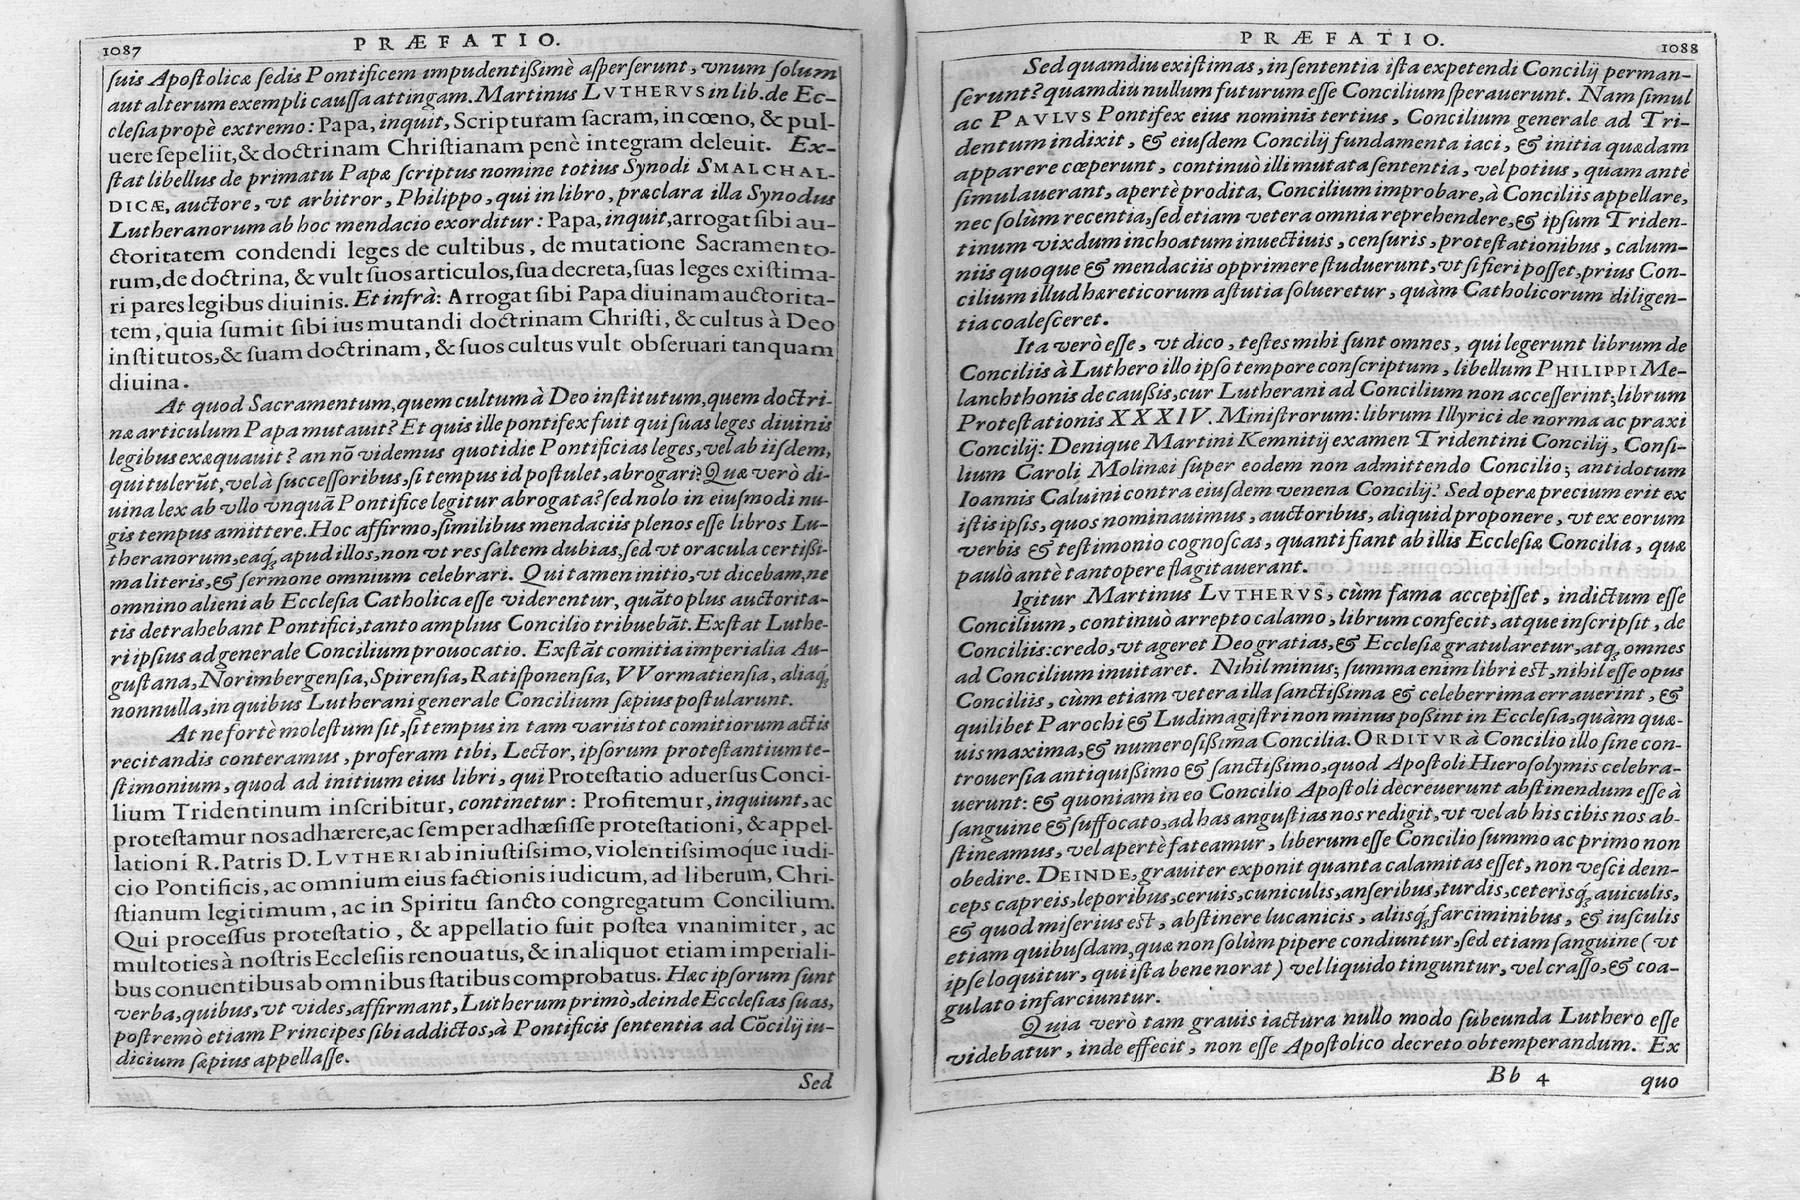 1087
PRÆFATIO.
suis Apostolicæ sedis Pontificem impudentißimè asperserunt, vnum solum
aut alterum exempli caussa attingam. Martinus LVTHERVS in lib. de Ec-
clesia propè extremo: Papa, inquit, Scripturam sacram, in cœno, & pul-
uere sepeliit, & doctrinam Christianam penè integram deleuit. Ex-
stat libellus de primatu Papæ scriptus nomine totius Synodi SMALCHAL-
DICÆ, auctore, vt arbitror, Philippo, qui in libro, præclara illa Synodus
Lutheranorum ab hoc mendacio exorditur: Papa, inquit, arrogat sibi au-
ctoritatem condendi leges de cultibus, de mutatione Sacramento-
rum, de doctrina, & vult suos articulos, sua decreta, suas leges existima-
ri pares legibus diuinis. Et infrà: Arrogat sibi Papa diuinam auctorita-
tem, quia sumit sibi ius mutandi doctrinam Christi, & cultus à Deo
institutos, & suam doctrinam, & suos cultus vult obseruari tanquam
diuina.
At quod Sacramentum, quem cultum à Deo institutum, quem doctri-
næ articulum Papa mutauit? Et quis ille pontifex fuit qui suas leges diuinis
legibus exæquauit? an nō videmus quotidie Pontificias leges, vel ab iisdem,
qui tulerūt, vel à successoribus, si tempus id postulet, abrogari? Quæ verò di-
uina lex ab vllo vnquā Pontifice legitur abrogata? sed nolo in eiusmodi nu-
gis tempus amittere. Hoc affirmo, similibus mendaciis plenos esse libros Lu-
theranorum, eaq́; apud illos, non vt res saltem dubias, sed vt oracula certißi-
ma literis, & sermone omnium celebrari. Qui tamen initio, vt dicebam, ne
omnino alieni ab Ecclesia Catholica esse viderentur, quāto plus auctorita-
tis detrahebant Pontifici, tanto amplius Concilio tribuebāt. Exstat Luthe-
ri ipsius ad generale Concilium prouocatio. Exstāt comitia imperialia Au-
gustana, Norimbergensia, Spirensia, Ratisponensia, VVormatiensia, aliaq́;
nonnulla, in quibus Lutherani generale Concilium sæpius postularunt.
At ne fortè molestum sit, si tempus in tam variis tot comitiorum actis
recitandis conteramus, proferam tibi, Lector, ipsorum protestantium te-
stimonium, quod ad initium eius libri, qui Protestatio aduersus Conci-
lium Tridentinum inscribitur, continetur: Profitemur, inquiunt, ac
protestamur nos adhærere, ac semper adhæsisse protestationi, & appel-
lationi R. Patris D. LVTHERI ab iniustissimo, violentissimoq́ue iudi-
cio Pontificis, ac omnium eius factionis iudicum, ad liberum, Chri-
stianum legitimum, ac in Spiritu sancto congregatum Concilium.
Qui processus protestatio, & appellatio fuit postea vnanimiter, ac
multoties à nostris Ecclesiis renouatus, & in aliquot etiam imperiali-
bus conuentibus ab omnibus statibus comprobatus. Hæc ipsorum sunt
verba, quibus, vt vides, affirmant, Lutherum primò, deinde Ecclesias suas,
postremò etiam Principes sibi addictos, à Pontificis sententia ad Cōcilij iu-
dicium sæpius appellasse.
Sed
PRÆFATIO.
1088
Sed quamdiu existimas, in sententia ista expetendi Concilij perman-
serunt? quamdiu nullum futurum esse Concilium sperauerunt. Nam simul
ac PAVLVS Pontifex eius nominis tertius, Concilium generale ad Tri-
dentum indixit, & eiusdem Concilij fundamenta iaci, & initia quædam
apparere cœperunt, continuò illi mutata sententia, vel potius, quam antè
simulauerant, apertè prodita, Concilium improbare, à Conciliis appellare,
nec solùm recentia, sed etiam vetera omnia reprehendere, & ipsum Triden-
tinum vixdum inchoatum inuectiuis, censuris, protestationibus, calum-
niis quoque & mendaciis opprimere studuerunt, vt si fieri posset, prius Con-
cilium illud hæreticorum astutia solueretur, quàm Catholicorum diligen-
tia coalesceret.
Ita verò esse, vt dico, testes mihi sunt omnes, qui legerunt librum de
Conciliis à Luthero illo ipso tempore conscriptum, libellum PHILIPPI Me-
lanchthonis de caußis, cur Lutherani ad Concilium non accesserint; librum
Protestationis XXXIV. Ministrorum: librum Illyrici de norma ac praxi
Concilij: Denique Martini Kemnitij examen Tridentini Concilij, Consi-
lium Caroli Molinæi super eodem non admittendo Concilio; antidotum
Ioannis Caluini contra eiusdem venena Concilij. Sed operæ precium erit ex
istis ipsis, quos nominauimus, auctoribus, aliquid proponere, vt ex eorum
verbis & testimonio cognoscas, quanti fiant ab illis Ecclesiæ Concilia, quæ
paulò antè tantopere flagitauerant.
Igitur Martinus LVTHERVS, cùm fama accepisset, indictum esse
Concilium, continuò arrepto calamo, librum confecit, atque inscripsit, de
Conciliis: credo, vt ageret Deo gratias, & Ecclesiæ gratularetur, atq; omnes
ad Concilium inuitaret. Nihil minus; summa enim libri est, nihil esse opus
Conciliis, cùm etiam vetera illa sanctissima & celeberrima errauerint, &
quilibet Parochi & Ludimagistri non minus poßint in Ecclesia, quàm quæ-
uis maxima, & numerosißima Concilia. ORDITVR à Concilio illo sine con-
trouersia antiquißimo & sanctißimo, quod Apostoli Hierosolymis celebra-
uerunt: & quoniam in eo Concilio Apostoli decreuerunt abstinendum esse à
sanguine & suffocato, ad has angustias nos redigit, vt vel ab his cibis nos ab-
stineamus, vel apertè fateamur, liberum esse Concilio summo ac primo non
obedire. DEINDE, grauiter exponit quanta calamitas esset, non vesci dein-
ceps capreis, leporibus, ceruis, cuniculis, anseribus, turdis, ceterisq́; auiculis,
& quod miserius est, abstinere lucanicis, aliisq́; farciminibus, & iusculis
etiam quibusdam, quæ non solùm pipere condiuntur, sed etiam sanguine (vt
ipse loquitur, qui ista bene norat) vel liquido tinguntur, vel crasso, & coa-
gulato infarciuntur.
Quia verò tam grauis iactura nullo modo subeunda Luthero esse
videbatur, inde effecit, non esse Apostolico decreto obtemperandum. Ex
Bb 4
quo